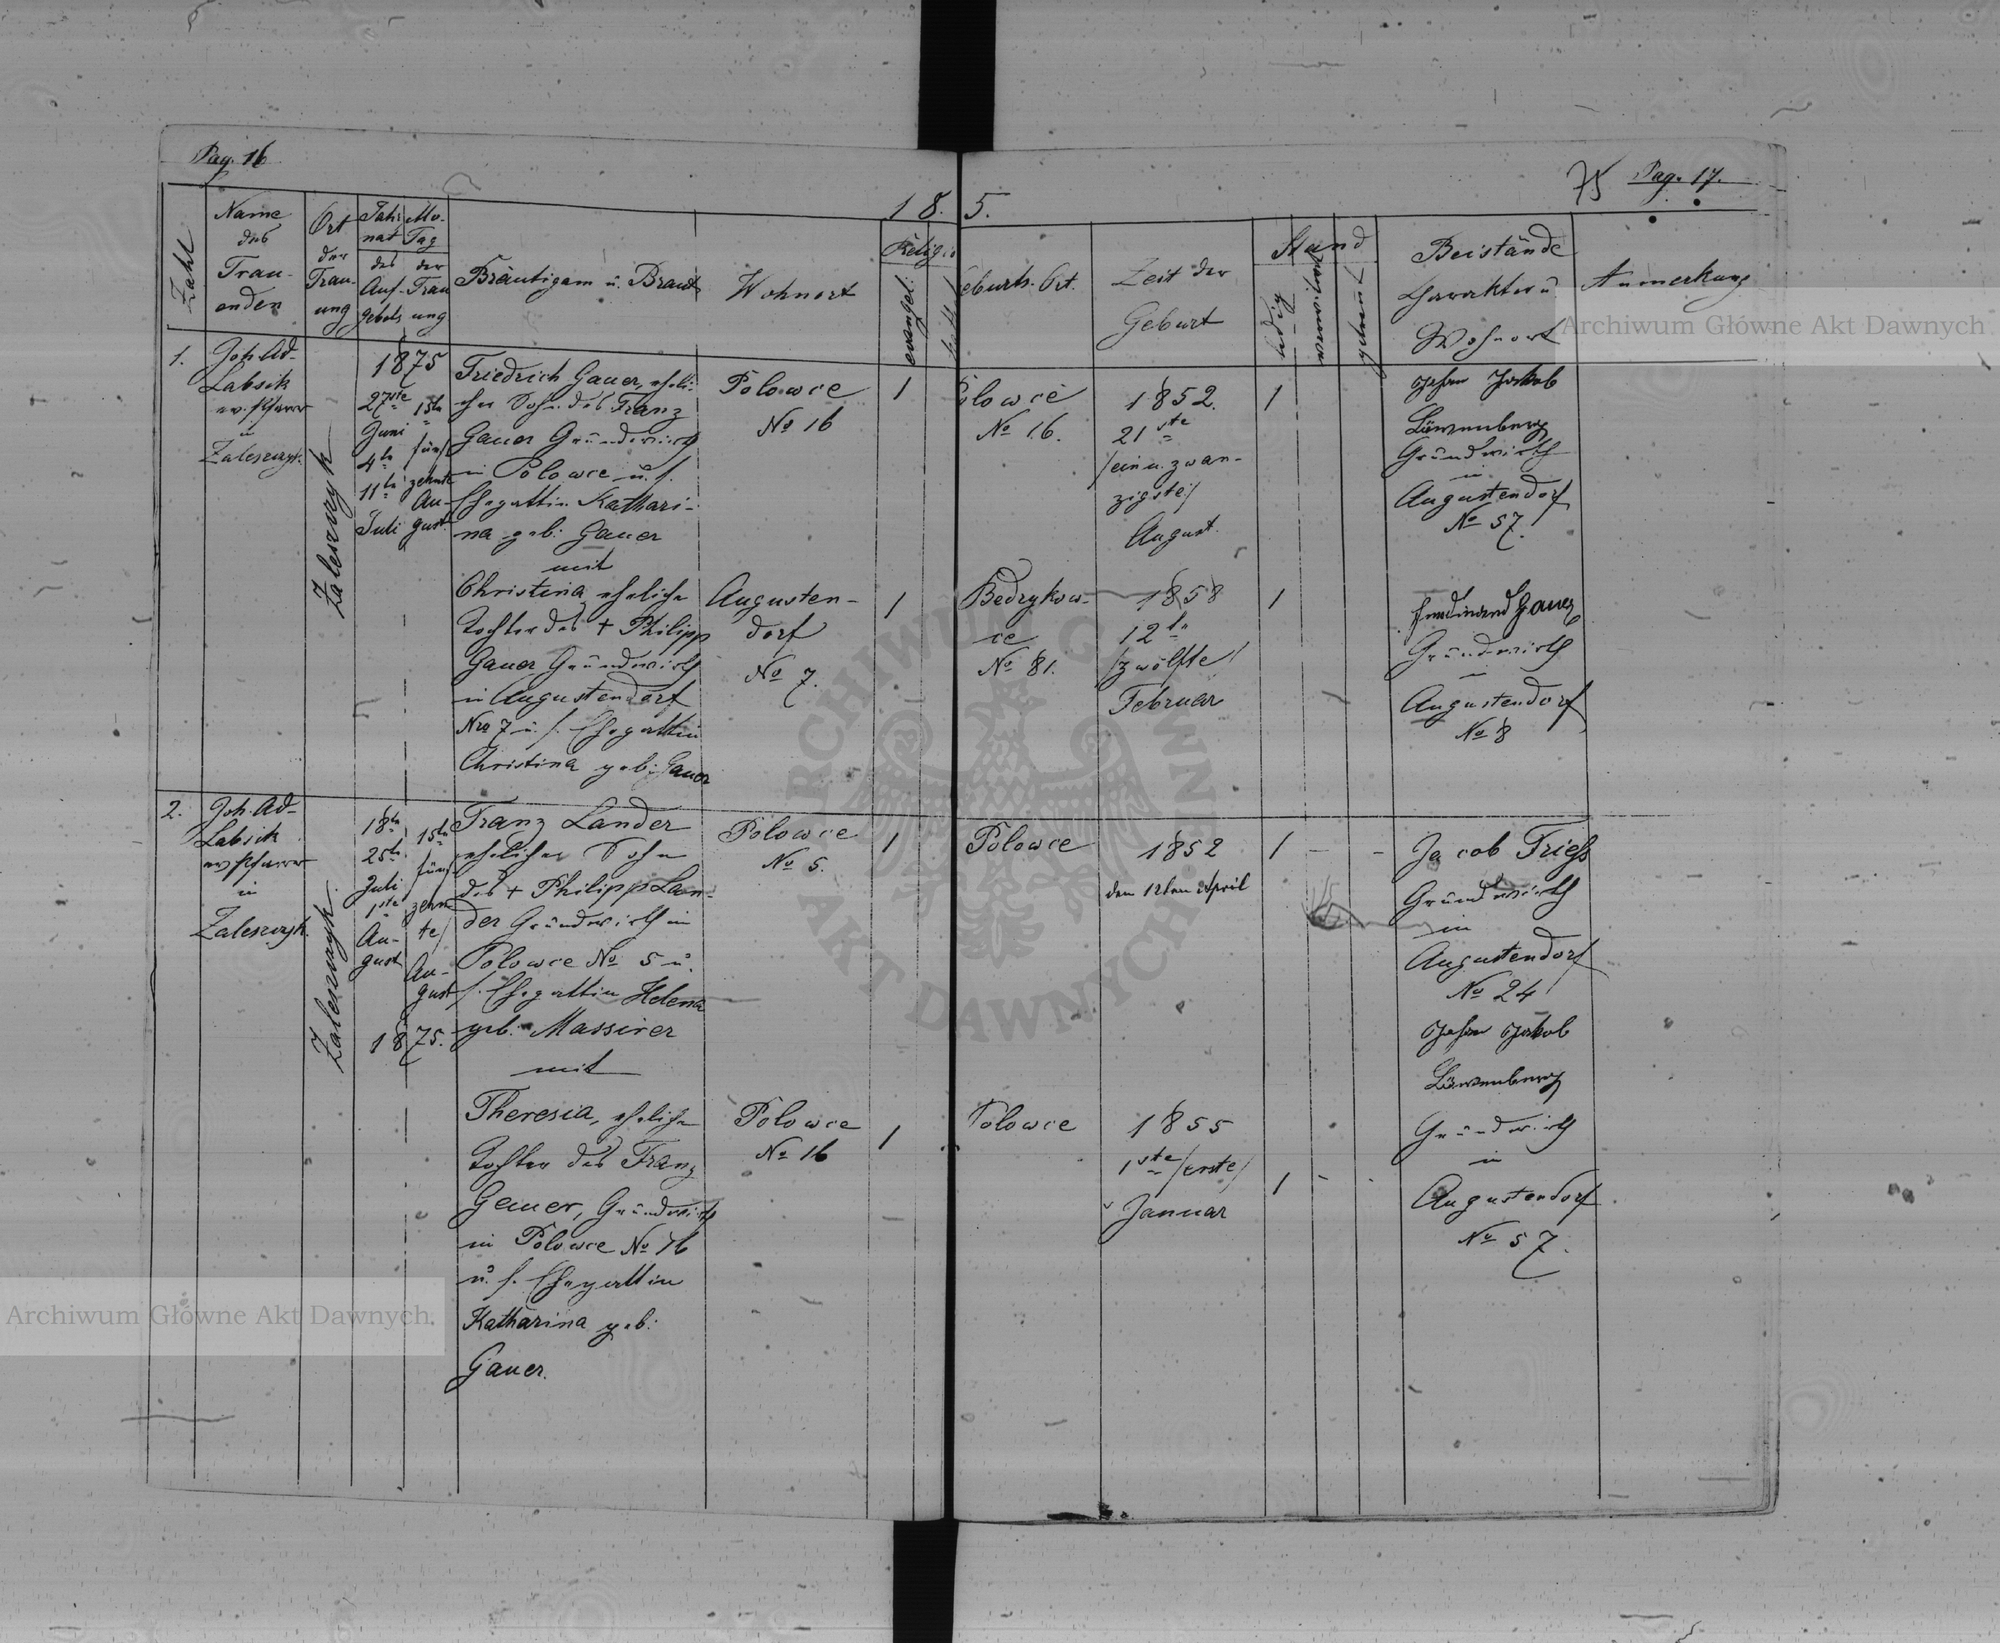 Pag. 16
75 Pag. 17.
1 8. 5.
Zahl
Name
des
Trau-
enden
Ort
der
Trau-
ung
Jahr Mo-
nat Tag
des der
Auf- Trau
gebots ung
Bräutigam u. Braut
Wohnort
Religio
evangel.
Geburts. Ort.
Zeit der
Geburt
Stand
ledig
verwittwet
getrennt
Beistände
Charakter u
Wohnort
Anmerkung
1.
Joh. Ad-
Labsik
ev. Pfarrer
in
Zaleszczyk.
Zaleszczyk
1875
27ste 15te
Juni fünf
4te zehnte
11te Au-
Juli gust.
Friedrich Gauer, eheli-
cher Sohn des Franz
Gauer Grundwirth
in Polowce u. s.
Ehegattin Kathari-
na geb. Gauer
mit
Christina eheliche
Tochter des + Philipp
Gauer Grundwirth
in Augustendorf
Nro 7 u. s. Ehegattin
Christina geb. Gauer
Polowce
No 16
Augusten-
dorf
No 7.
1
1
Polowce
No 16.
Bedrykow-
ce
No 81.
1852.
21ste
/ein u. zwan-
zigste/
August.
1858
12te
/zwölfte/
Februar
1
1
Johann Jakob
Löwenberg
Grundwirth
in
Augustendorf
No 57.
Ferdinand Gauer
Grundwirth
in
Augustendorf
No 8
2.
Joh. Ad-
Labsik
ev. Pfarrer
in
Zaleszczyk.
Zaleszczyk.
18te 15te
25te /fünf
Juli
1ste zehn-
Au- te/
gust Au-
gust
1875.
Franz Lander
ehelicher Sohn
des + Philipp Lan-
der Grundwirth in
Polowce No 5 u.
s. Ehegattin Helena
geb. Massirer
mit
Theresia, eheliche
Tochter des Franz
Gauer, Grundwirth
in Polowce No 16
u. s. Ehegattin
Katharina geb.
Gauer.
Polowce
No 5.
Polowce
No 16
1
1
Polowce
Polowce
1852
den 12ten April
1855
1ste /erste/
Januar
1 - -
1 - -
Jacob Triess
Grundwirth
in
Augustendorf
No 24
Johann Jakob
Löwenberg
Grundwirth
in
Augustendorf
No 57.
Archiwum Główne Akt Dawnych
Archiwum Główne Akt Dawnych.
ARCHIWUM GŁÓWNE AKT DAWNYCH